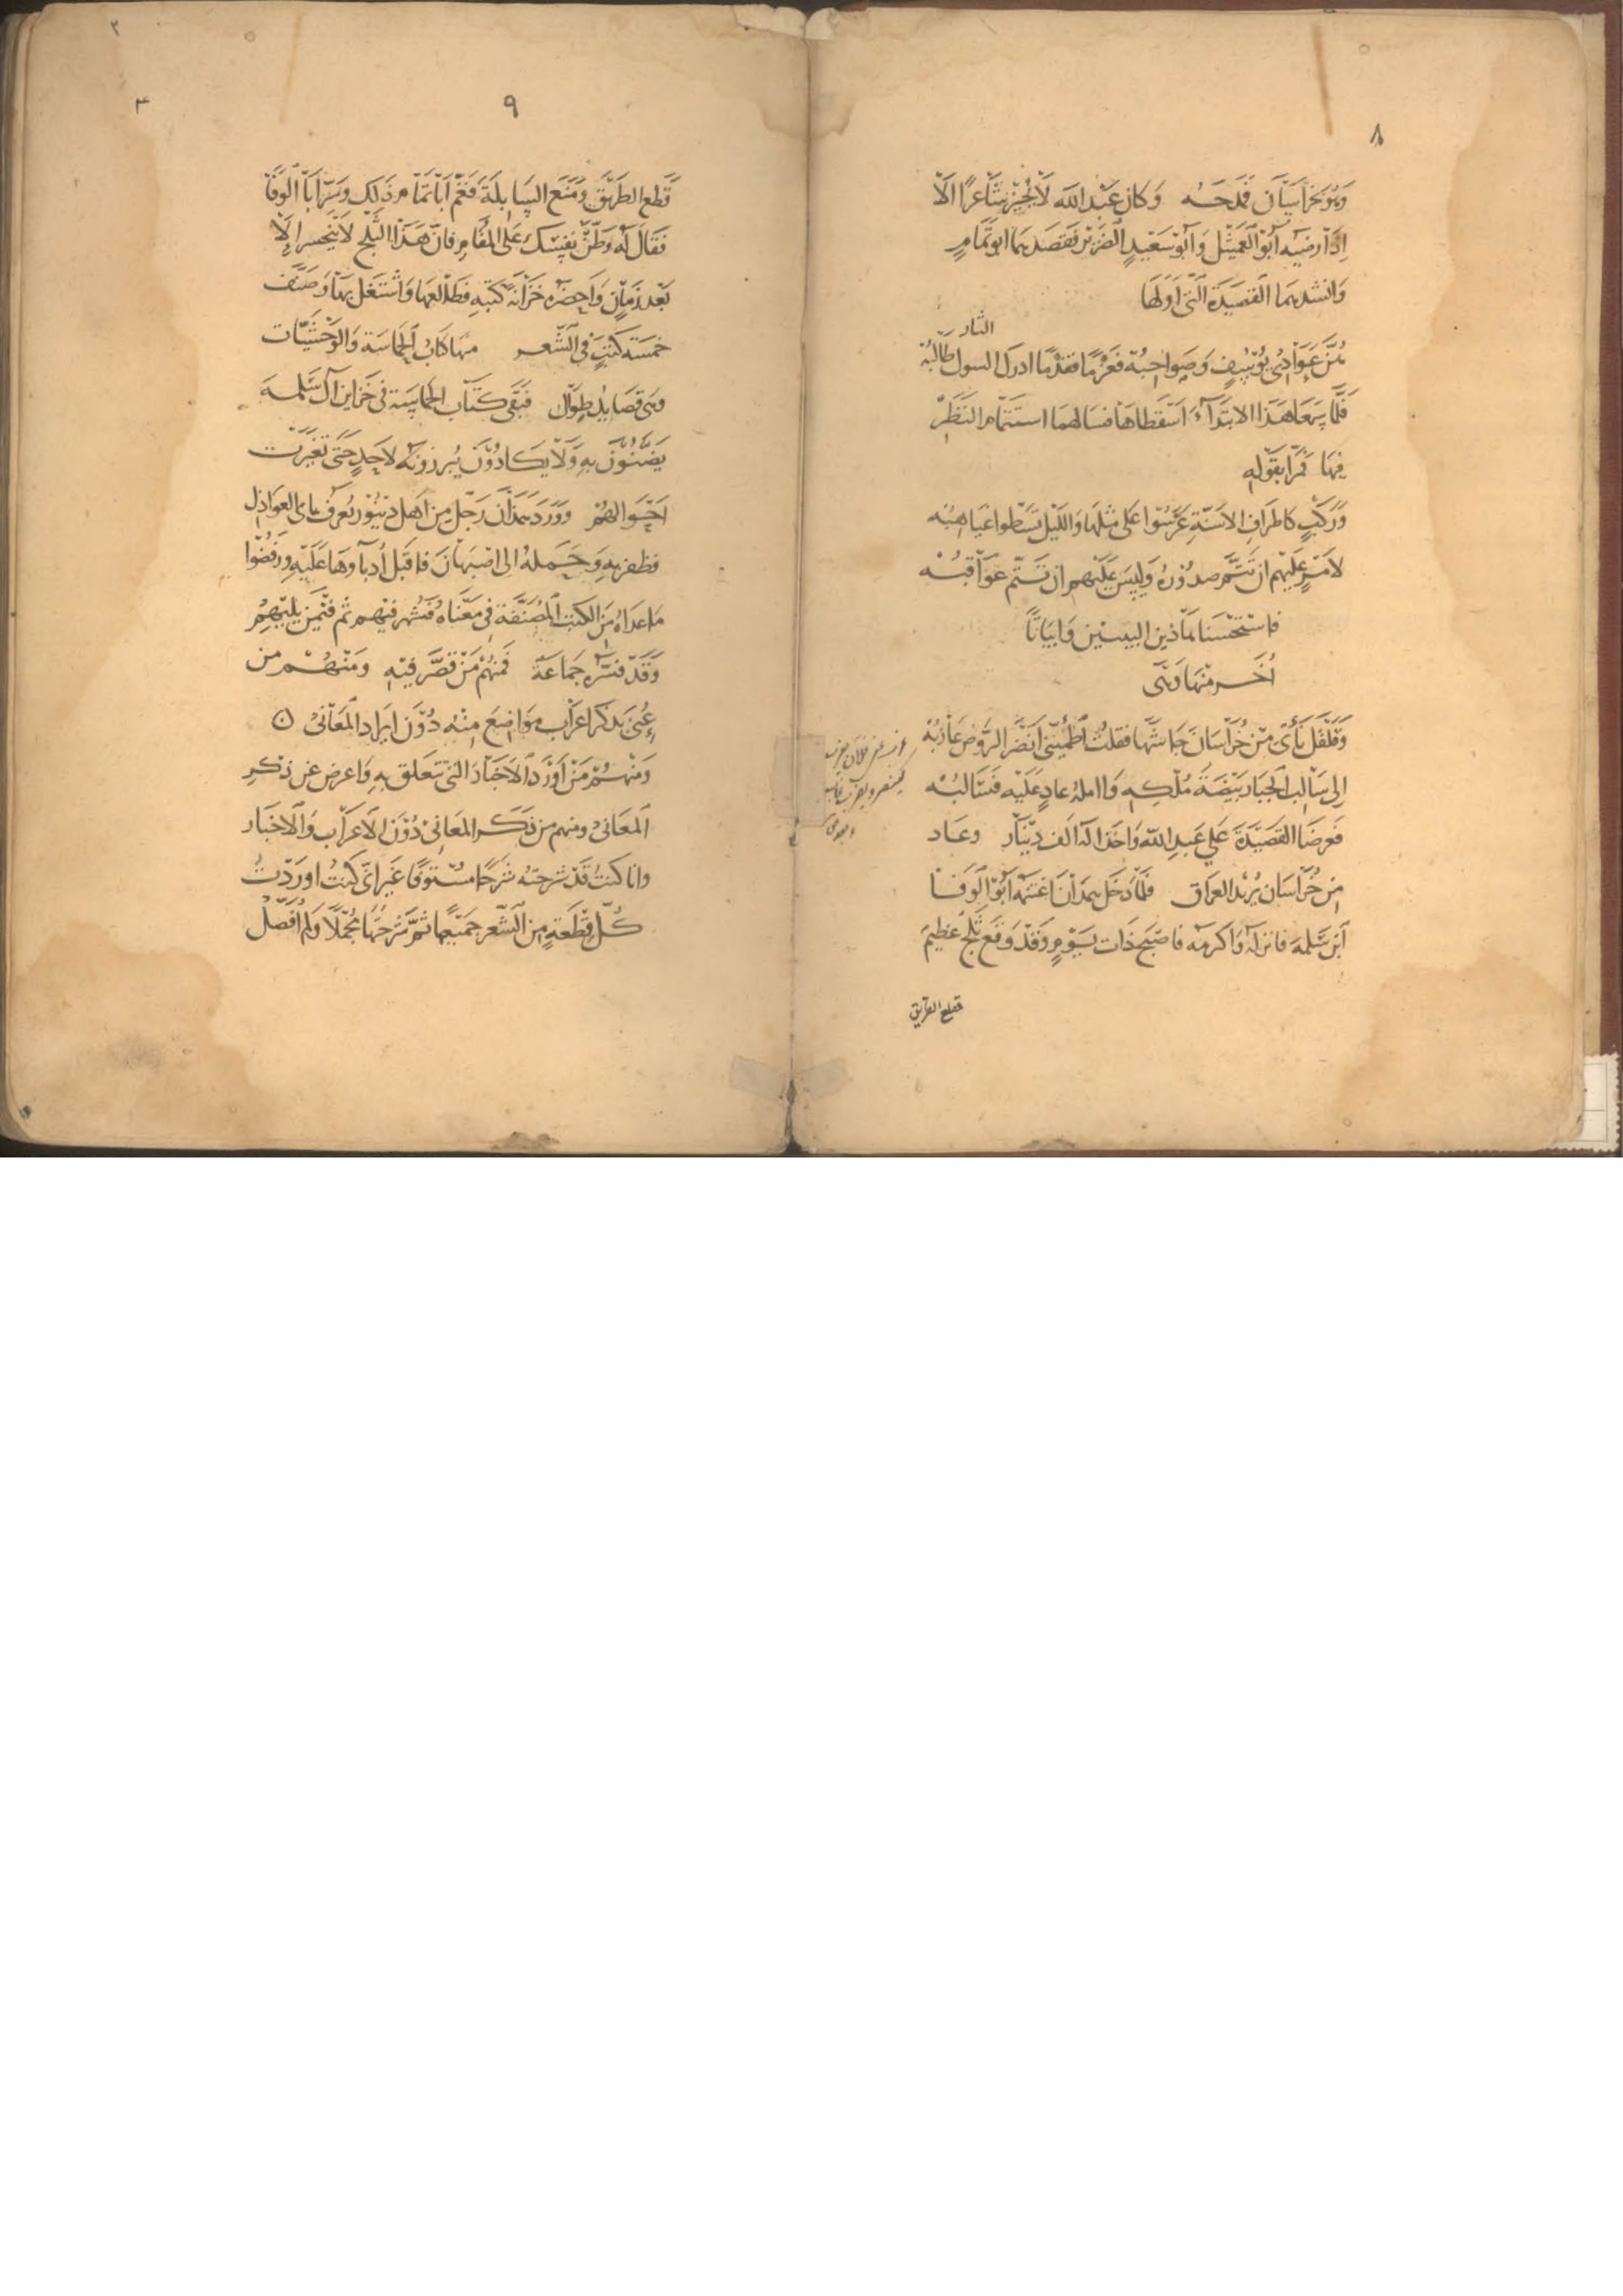 ٨
وَهُوَ بخراسَان فمَدحَهُ وَكان عَبْد الله لَا يُجيْز شَاعرًا الّا
اِذَا رضيَه اَبُوْ العَمَيثل وَ اَبُوْ سَعْيدٍ الضَّريْر فَقصَدهمَا ابو تَمَّامٍ
وَانشدهمَا القصَيدَة الّتىْ اوّلهَا
الثار
هُنَّ عَوَادِىْ يُوْسُفٍ وَصَواحِبُهْ فعَزْمًا فقدْمًا ادرك السول طَالبُهْ
فَلمَّا سَمعَا هَذا الابتَداۤء اسْقطاهَا فسَالهمَا استَتمَام النَظَر
فيهَا فمَرّا بقَوْلهِ
وَرَكبٍ كاطرَافِ الاسَنّةِ عَرَّسُوْا عَلى مثْلهَا وَاللّيْل تَسْطوا غيَاهبُهْ
لامْرٍ عَلَيْهم ان تَتمّ صدُوْرهُ وَليسَ عَلَيْهم ان تَتمّ عَوَاقبُهْ
فاسْتَحْسَنا هَاذين البيتين وَابيَاتًا
اُخَر منْهَا وَهىَ
وَقَلْقَل نَأْىٌ مّنْ خُرَاسَانَ جَاشهَا فقلتُ اطْمئِنّى اَنضَر الرَّوْض عَازبُهْ
اِلى سَالب الجبّار بَيْضَةَ مُلْكهِ وَاامله غادٍ عَلَيْه فسَالبُهْ
فعَرضَا القَصيْدَةَ عَلى عَبدِ اللّه وَاخَذا لهُ الف ديْنَارٍ وعَاد
من خُرَاسَان يُريْد العرَاق فلمّا دَخَل همذان اغتنَمهُ اَبُوْ الوَفَا
اَبن سَلمة فانزلهُ وَاكرمَه فاصْبَح ذَات يَوْمٍ وقَدْ وَقعَ ثَلجٌ عَظيم
قطع الطريق
٩
قطع الطريْق وَمَنَع السَابلَة فغمّ اَبَا تمّام ذلِك وَسَرّ اَبَا الوَفَا
فقَالَ لَه وَطّنْ نفسَك عَلى المُقَام فانّ هَذا الثلج لَا يَنْحسر اِلّا
بَعْد زَمانٍ وَاحضرَه خَزَانَة كتبهِ فطالعهَا وَاشتَغل بهَا وَصنّف
خمسَة كتبٍ فى الشّعر منهَا كتابُ الحَماسَة وَالوَحْشيّات
وهى قصَايد طوَال فَبقى كتَاب الحَماسَة فى خزاين آل سَلمة
يَضنّوْن به وَلَا يَكَادُوْن يُبرزونَه لاحَدٍ حَتّى تغيّرَت
احْوَالهُمْ وَوَرَد همذان رَجلٌ من اهل دينَوَر يُعرَف بابى العوَاذل
فظفر بهِ وَحَملهُ الى اصْبهَان فاقبَل اُدباۤوهَا عَليْهِ وَرفضُوْا
مَا عَدَاهُ مَن الكتب المُصَنّفَة فى مَعْنَاهُ فشُهر فيْهم ثم فيْمن يليْهم
وَقدْ فسّرَه جَمَاعَة فمنهُمْ مَنْ قصّر فيْه وَمنْهُم من
عُنىَ بذكر اعْراب مواضعَ منْهُ دُوْن ايرَاد المعَانىْ
وَمنْهُمْ مَنْ اَوْرَد الاخبَار التىْ تتعَلق بهِ وَاعرض عَن ذكرِ
المعَانىْ ومنهم من ذكَر المعَانىْ دُوْن الاعرَاب وَالاخبَار
وانا كنتُ قدْ شرحتهُ شرحًا مستوفًا غَير انّى كنتُ اوردْتُ
كلّ قطعَةٍ من الشّعر جَميْعهَا ثمّ شرَحْتهَا مجْمَلًا وَلم اُفصّل